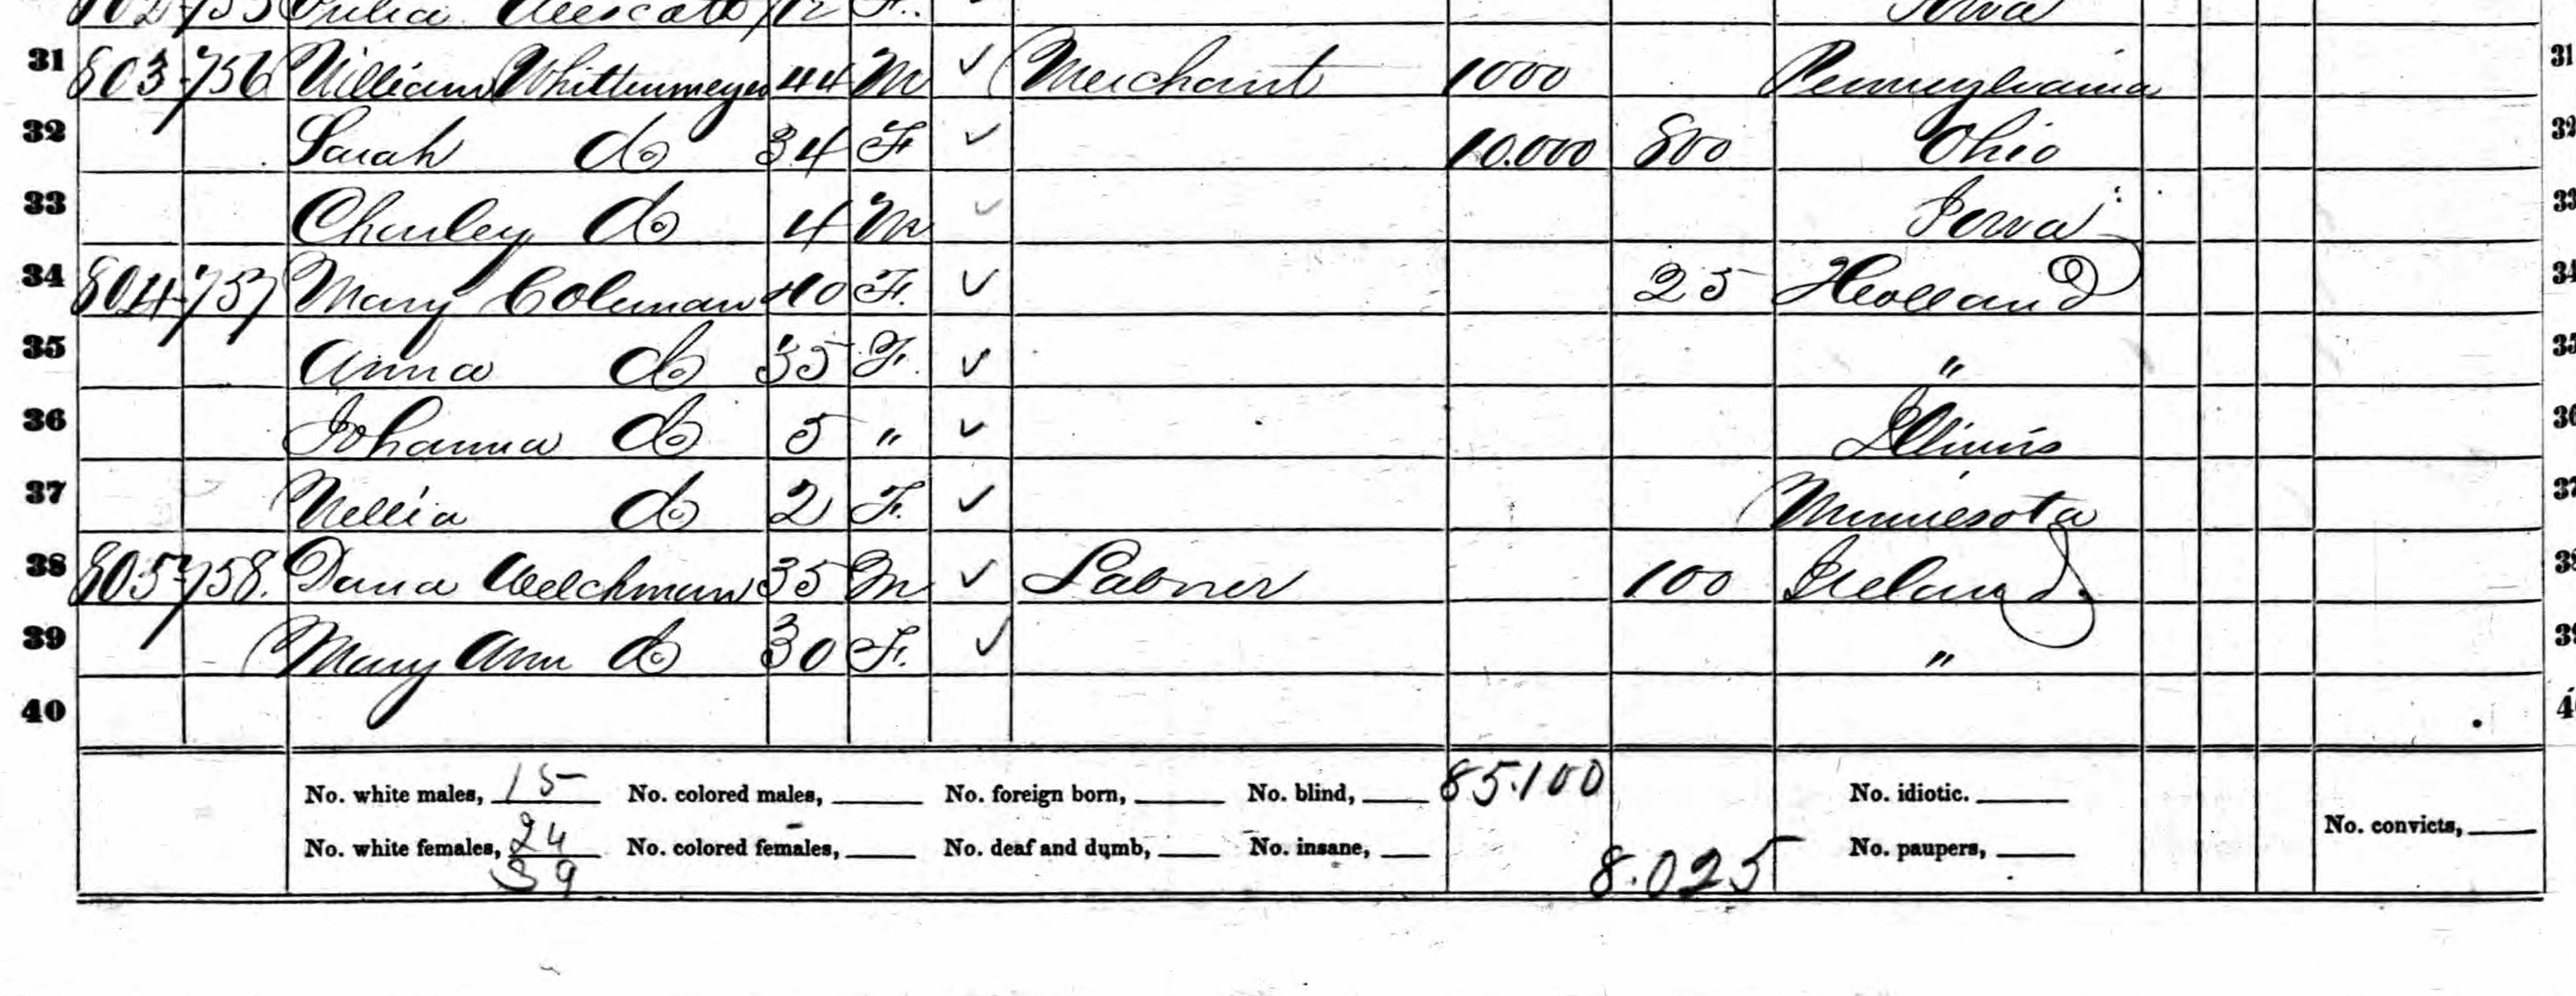 Iowa
31 803 756 William Whittenmeyer 44 M ✓ Merchant 1000 Pennsylvania 31
32 Sarah do 34 F ✓ 10.000 800 Ohio 32
33 Charley do 4 M ✓ Iowa 33
34 804 757 Mary Coleman 40 F. ✓ 25 Holland 34
35 Anna do 35 F. ✓ " 35
36 Johanna do 5 " ✓ Illinois 36
37 Nellia do 2 F. ✓ Minnesota 37
38 805 758. Dana Welchman 35 M ✓ Laborer 100 Ireland 38
39 Mary Ann do 30 F. ✓ " 39
40 4
No. white males, 15 No. colored males, No. foreign born, No. blind, 85.100 No. idiotic.
No. white females, 24 No. colored females, No. deaf and dumb, No. insane, No. paupers, No. convicts,
39 8.025